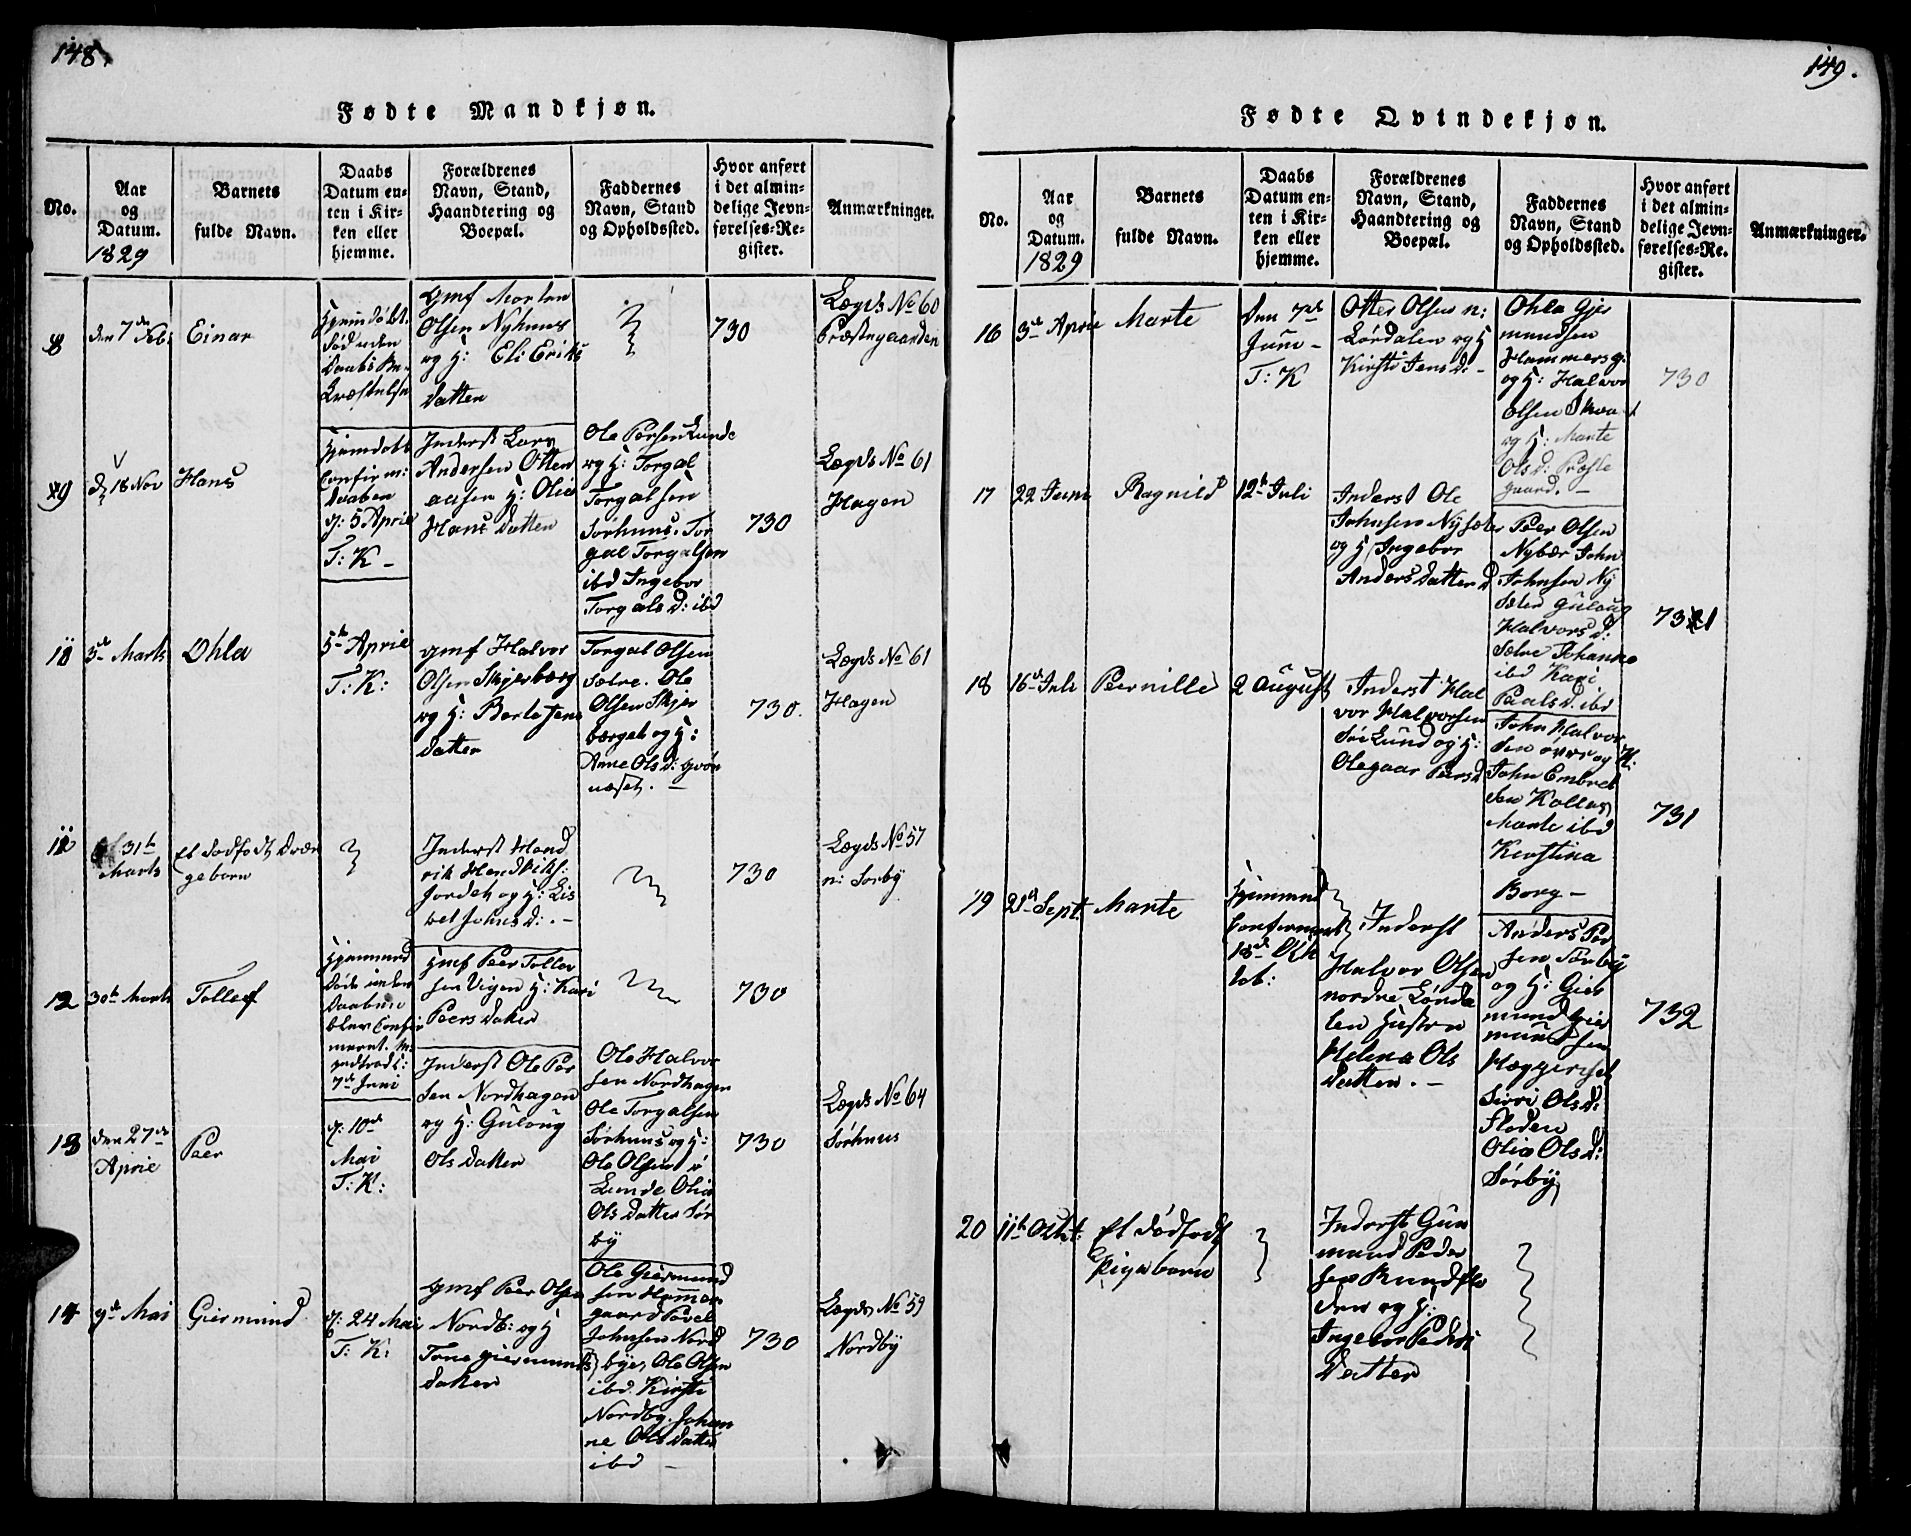 148.
Fødte Mandkjøn.
No.
Aar
og
Datum.
1829
Barnets
fulde Navn.
Daabs
Datum en-
ten i Kir-
ken eller
hjemme.
Forældrenes
Navn, Stand,
Haandtering og
Boepæl.
Faddernes
Navn, Stand
og Opholdssted.
Hvor anført
i det almin-
delige Jevn-
førelses-Re-
gister.
Anmærkninger.
8
den 7de Feb
Einar
gmf Morten
Olsen Nyhuus
og H: Eli Eriks
datter
730
Lægds No 60
Præstegaarden
9
18 Nov
Hans
Hjemdøbt
Confirm:
daaben
5 April
T: K -
Inderst Lars
Andersen Otten
H: Olia
Hans datter
Ole Persen Lunde
og H: Torgal
Torgalsen
Sørhuus. Tor
gal Torgalsen
ibd Ingebor
Torgals d: ibd
730
Lægds No 61
Hagen
3de Marts
Ohla
5te April
T: K:
gmf Halvor
Olsen Skjerbærg
og H: Berte Jens
datter
Torgal Olsen
Sælve. Ole
Olsen Skjer
bærget og H:
Anne Ols d:
730.
Lægds No 61
Hagen
31te
Marts
Et dødfødt Dren
gebarn
Inderst Hend
rik Hendriks:
Jordet og H: Lis
bet Johns d: . -
730
Lægds No 57
n: Sørby
12
30te Marts
Tollef
Hjemmed
Døbt uden
Daaben
blev Confir
meret
7de Juni
gmf Peer Tollev
sen Vigen H: Kari
Peers datter
730
13
den 27de
April
Peer
10de
Mai
T: K:
Inderst Ole Per
sen Nordhagen
og H: Guloug
Ols datter
Ole Halvor
sen Nordhagen
Ole Torgalsen
Sørhuus og H:
Ole Olsen
Lunde Olia
Ols datter Sør
by
730
Lægds No 64
Sørhuus
14
9de Mai
Giermund
24 Mai
T: K:
gmf Peer Olsen
Nordb: og H
Tone Giermunds
datter
Ole Giermund
sen Hammer
gaard Povel
Johnsen Nord
bye, Ole Olsen
ibd. Kirsti
Nordby. Johan
ne Ols datter
ibd -
730
Lægds No 59
Nordby
149.
Fødte Qvindekjøn.
No.
Aar
og
Datum.
1829
Barnets
fulde Navn.
Daabs
Datum en-
ten i Kir-
ken eller
hjemme.
Forældrenes
Navn, Stand,
Haandtering og
Boepæl.
Faddernes
Navn, Stand
og Opholdssted.
Hvor anført
i det almin-
delige Jevn-
førelses-Re-
gister.
Anmærkninger.
16
3de April
Marte
den 7de
Juni -
T: K
Otter Olsen n:
Lørdalen og H
Kirsti Jens d: -
Ohla Gjer
mundsen
Hammersg.
og H: Halvor
Olsen
og H: Marte
Ols d: Præste
gaard. -
730
17
22 Juni
Ragnild
12te Juli
Inderst Ole
Johnsen Nysæter
og H Ingebor
Anders datter
Peer Olsen
Nybær John
Johnsen Ny
sæter Guloug
Halvors d:
Sælve Johanne
ibd Kari
Paals d. ibd
731
18
16de Juli
Peernille
2 August
Inderst Hal
vor Halvorsen
Lund og H:
Olegaar Peers d
John Halvor
sen øvre og H:
John Embret
sen Kollaas
Marte ibd
Kerstina
Borg -
731
19
21de Sept.
Marte
Hjemmed
Confirmeret
18de Okt
tob:
Inderst
Halvor Olsen
nordre Lørda
len Hustru
Helena Ols
datter. -
Anders Per
sen Sørby
og H: Gier
mund Gier
mundsen
Sirri Ols d:
Floden
Olia Ols d:
Sørby
732
20
11te Octbr.
Et dødfødt
Pigebarn
Inderst Gun
mund Peder
sen Rundflo
den og H:
Ingebor Peders
datter